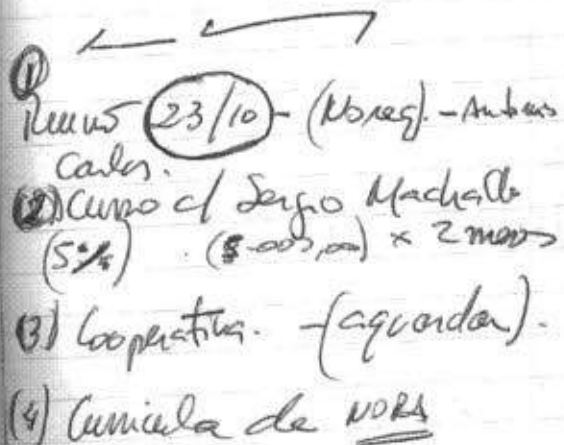 (1)
23/10 - (Noreg). - Antonio
Carlos.
(2) Curso c/ Sergio Machado
(5%) x 2 meses
(3) Cooperativa. - (aguardar).
(4) Curricula da NORA